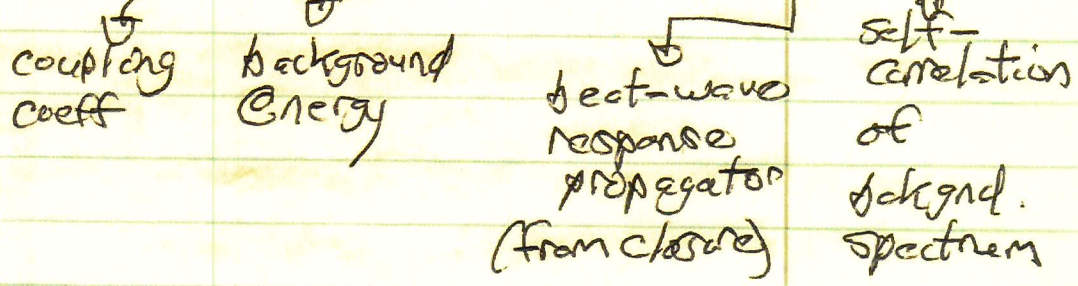 coupling
coeff
background
energy
beat-wave
response
propagator
(from closure)
self-
correlation
of
bckgnd.
spectrum